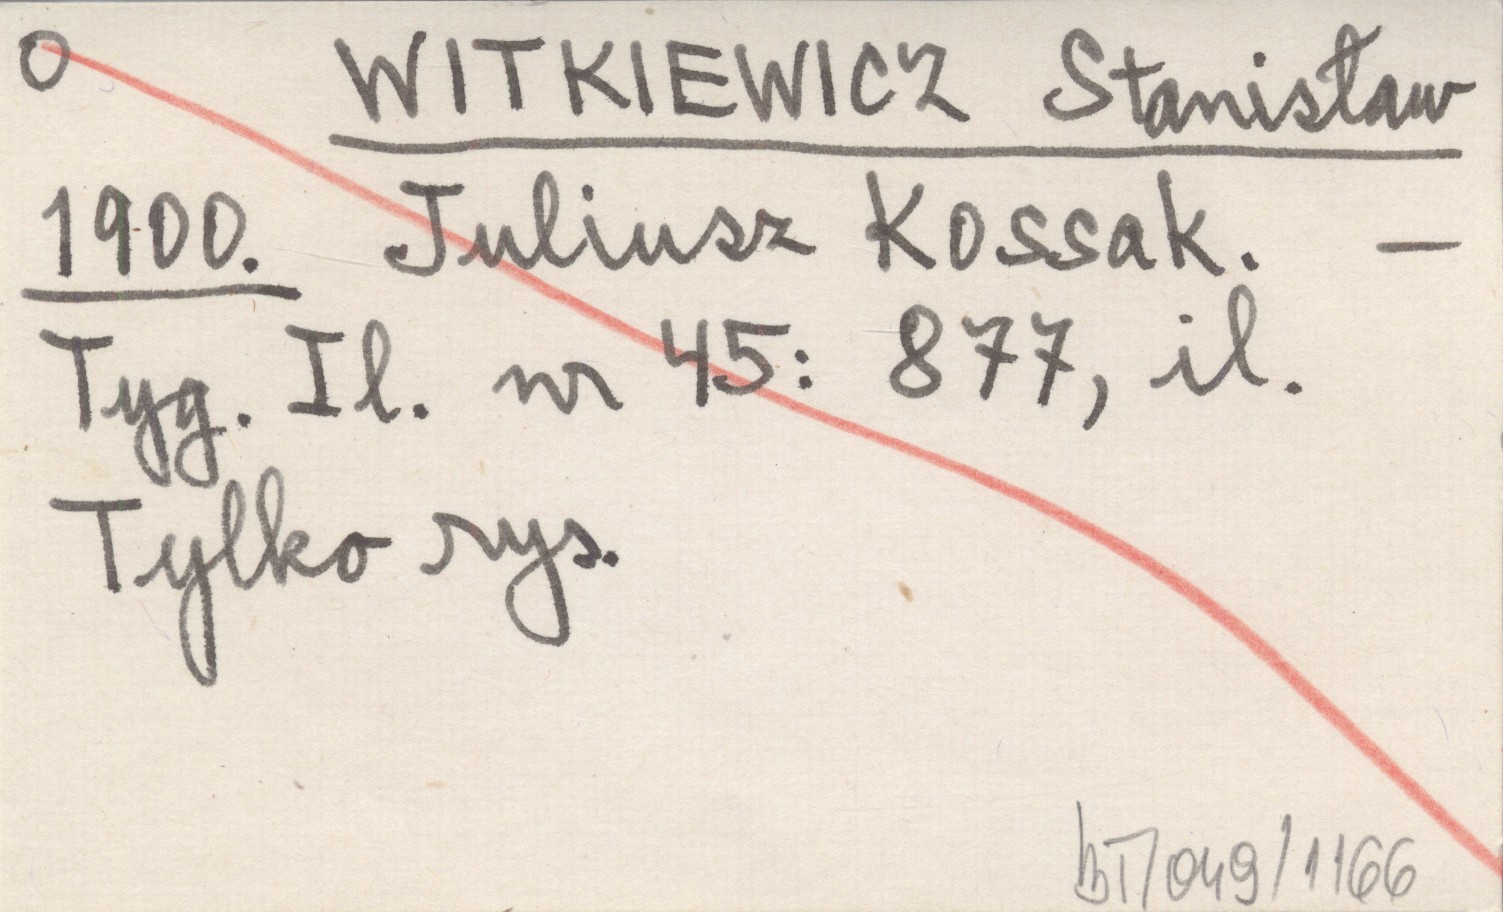 O WITKIEWICZ Stanisław
1900. Juliusz Kossak. —
Tyg. Il. nr 45: 877, il.
Tylko rys.
bT/049/1166